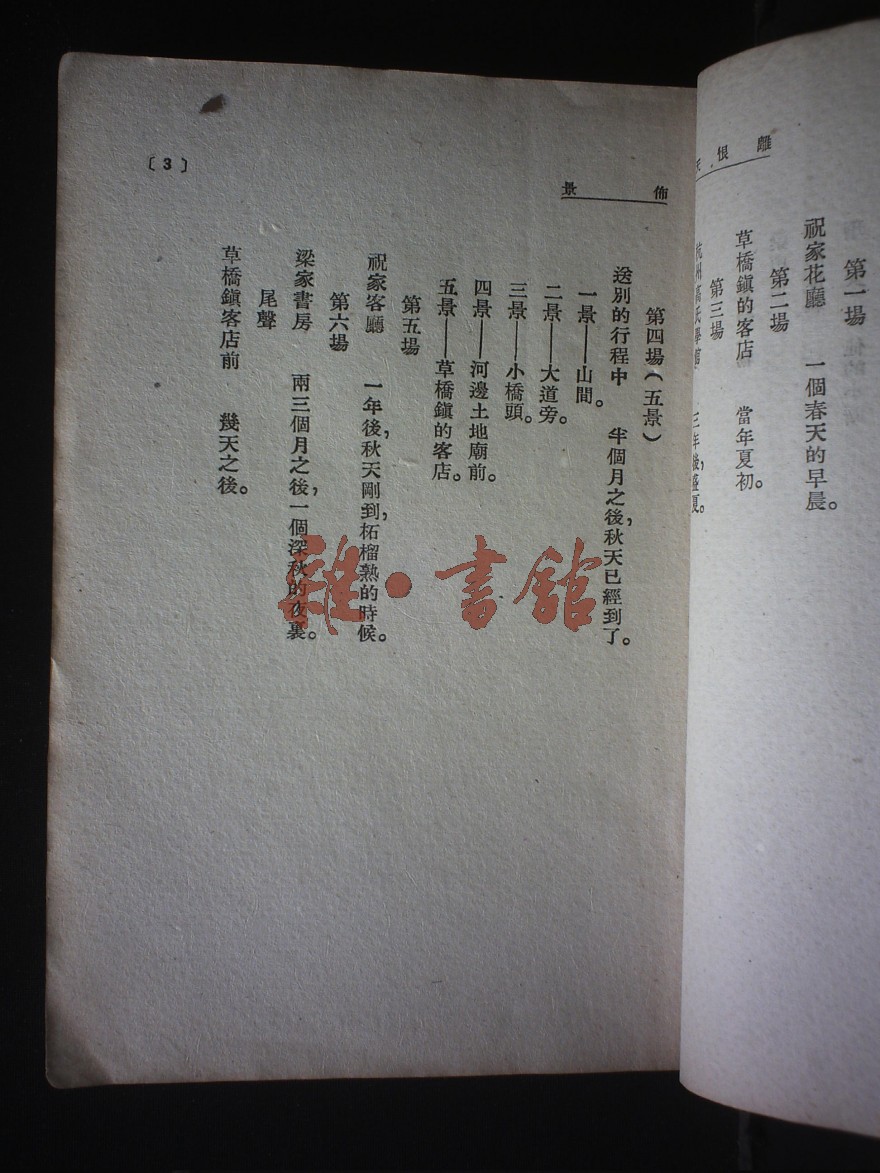 離恨天
第一場
祝家花廳　一個春天的早晨。
第二場
草橋鎮的客店　當年夏初。
第三場
杭州高氏學館　三年後，盛夏。
佈景
第四場（五景）
送別的行程中　半個月之後，秋天已經到了。
一景——山間。
二景——大道旁。
三景——小橋頭。
四景——河邊土地廟前。
五景——草橋鎮的客店。
第五場
祝家客廳　一年後，秋天剛到，柘榴熟的時候。
第六場
梁家書房　兩三個月之後，一個深秋的夜裏。
尾聲
草橋鎮客店前　幾天之後。
〔3〕
雜·書館